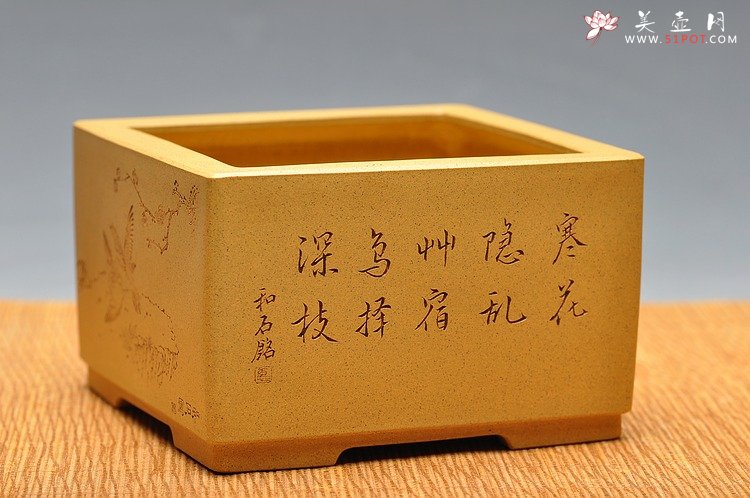 美壶网
WWW.51POT.COM
寒花
隐乱
艸宿
鸟择
深枝
和石铭